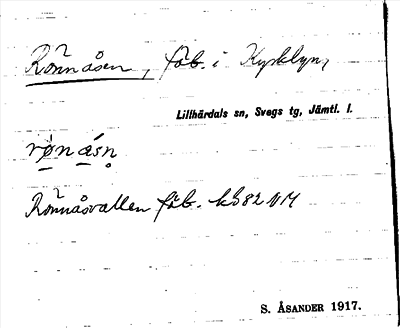 Rönnåsen, fäb. i Kyrkbyn,
Lillhärdals sn, Svegs tg, Jämtl. l.
rønåsn
Rönnåsvallen fäb. kb 82 NM
S. ÅSANDER 1917.